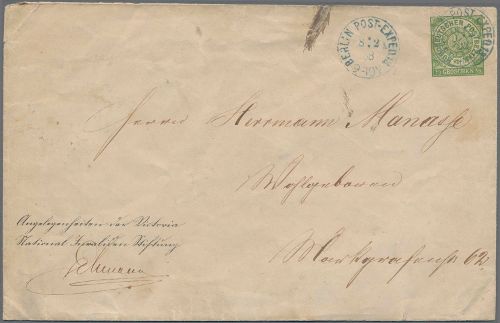 BERLIN POST-EXPED.
8 2
68
POST-EXPED.
1/2 GROSCHEN 1/2
Herrn Herrmann Manasse
Wohlgeboren
Markgrafenstr 62
Angelegenheiten der Victoria
National Invaliden Stiftung